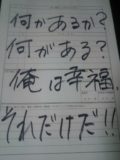 何かあるか?
何がある?
俺は幸福.
それだけだ!!